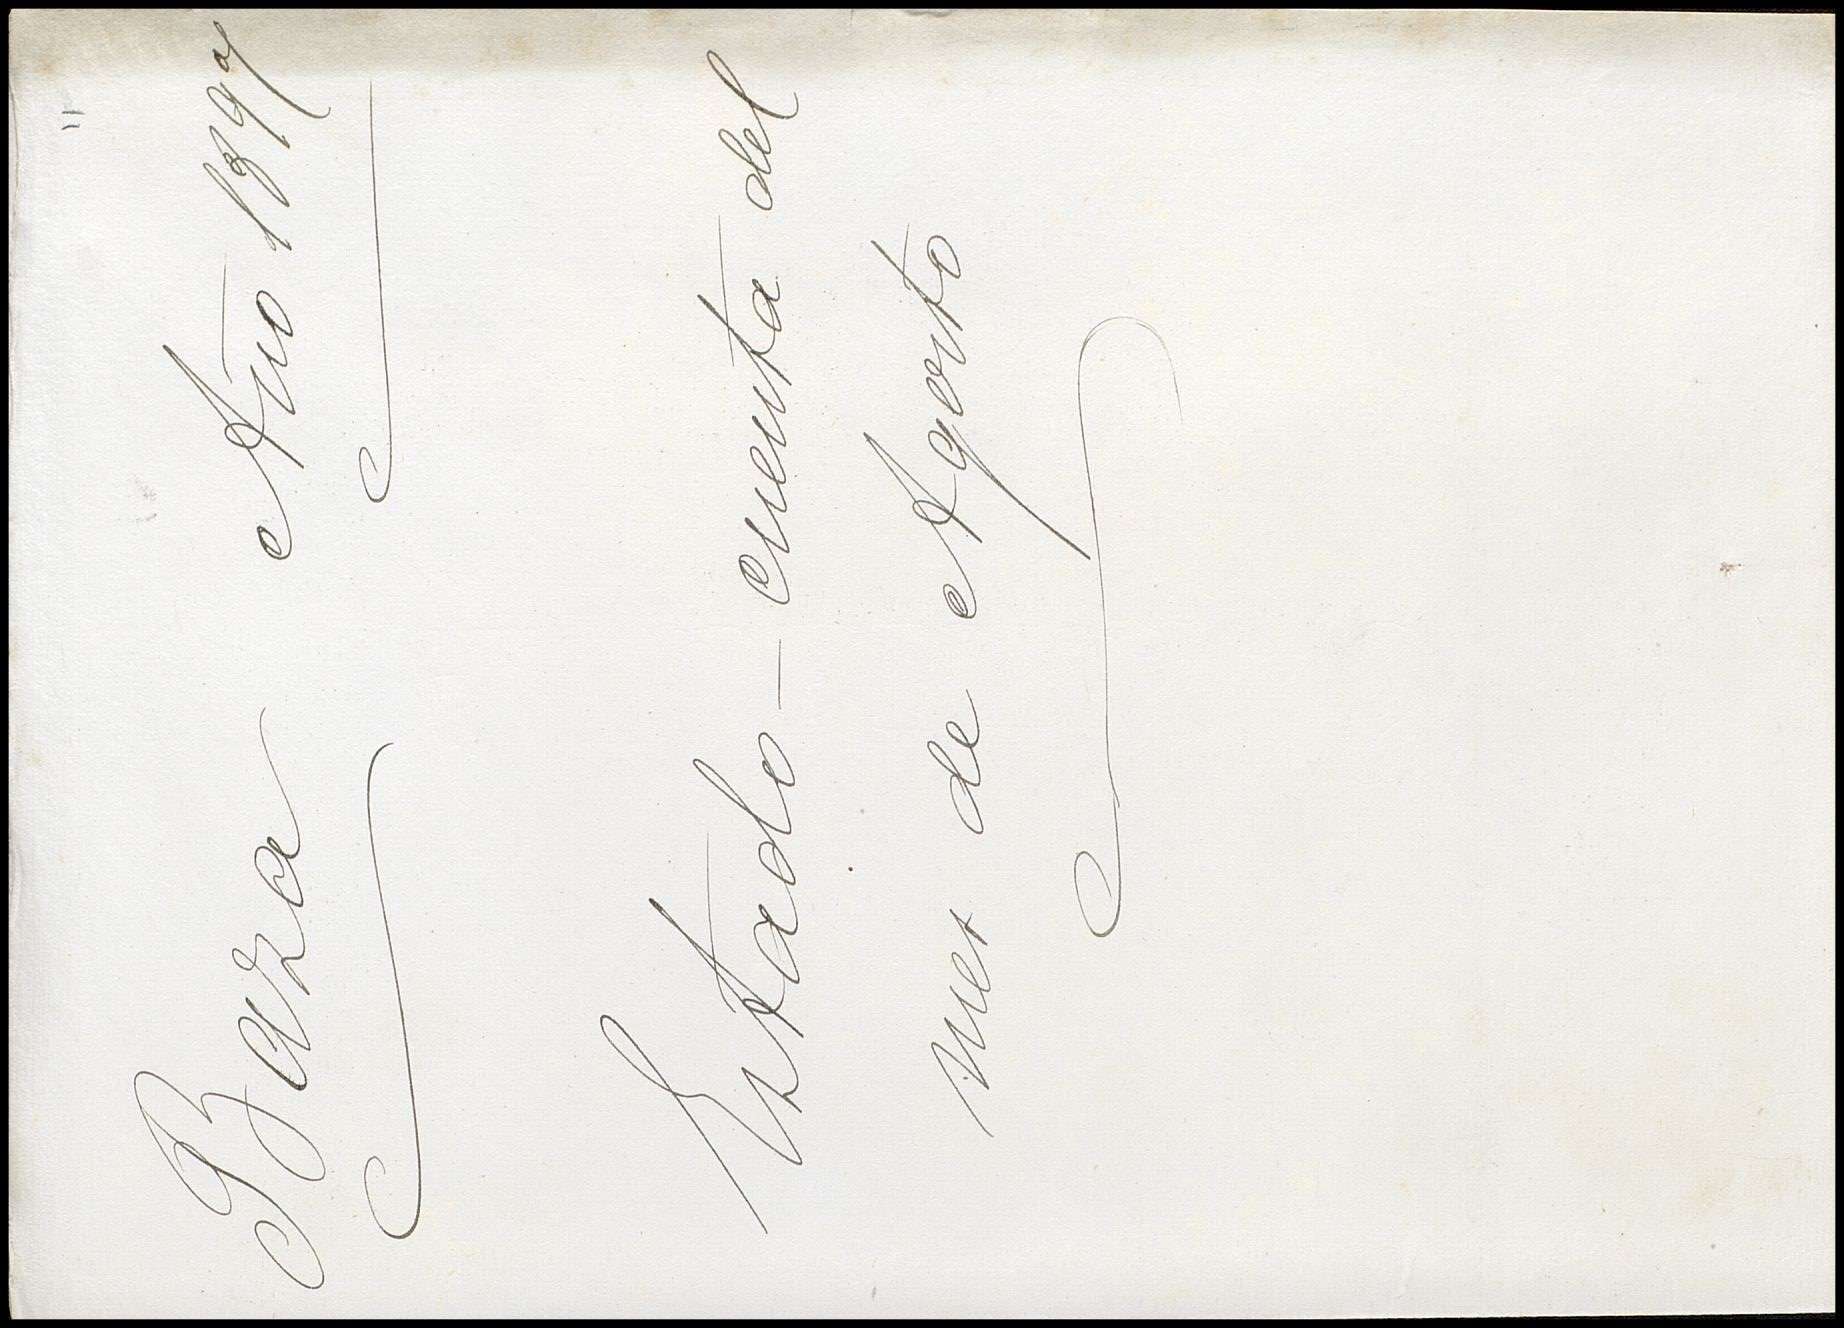 Baza Año 1897
Estado-cuenta del
mes de Agosto